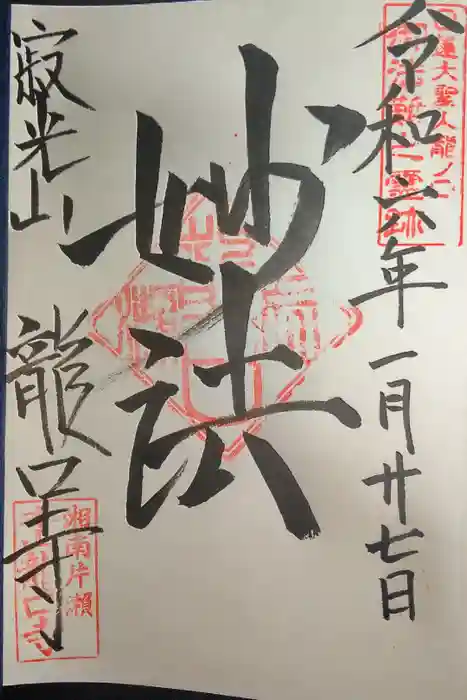 令和六年一月廿七日
日蓮大聖人龍ノ口
御法難之霊跡
妙法
寂光山 龍口寺
湘南片瀬
龍口寺